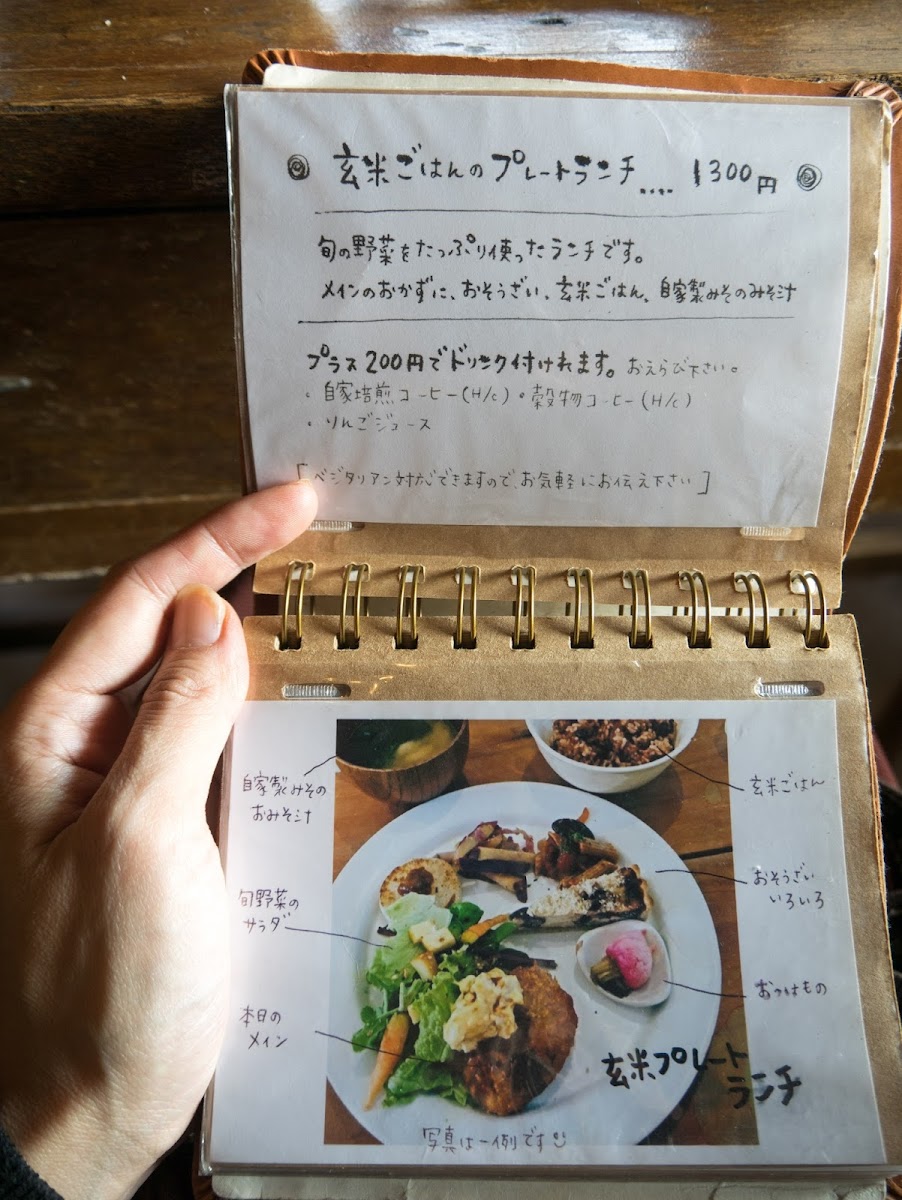 玄米ごはんのプレートランチ.... 1300円
旬の野菜をたっぷり使ったランチです。
メインのおかずに、おそうざい、玄米ごはん、自家製みそのみそ汁
プラス200円でドリンク付けれます。おえらび下さい。
・自家焙煎コーヒー(H/c)・穀物コーヒー(H/c)
・りんごジュース
[ベジタリアン対応できますので、お気軽にお伝え下さい]
自家製みその
おみそ汁
旬野菜の
サラダ
本日の
メイン
玄米ごはん
おそうざい
いろいろ
おつけもの
玄米プレート
ランチ
写真は一例です☺